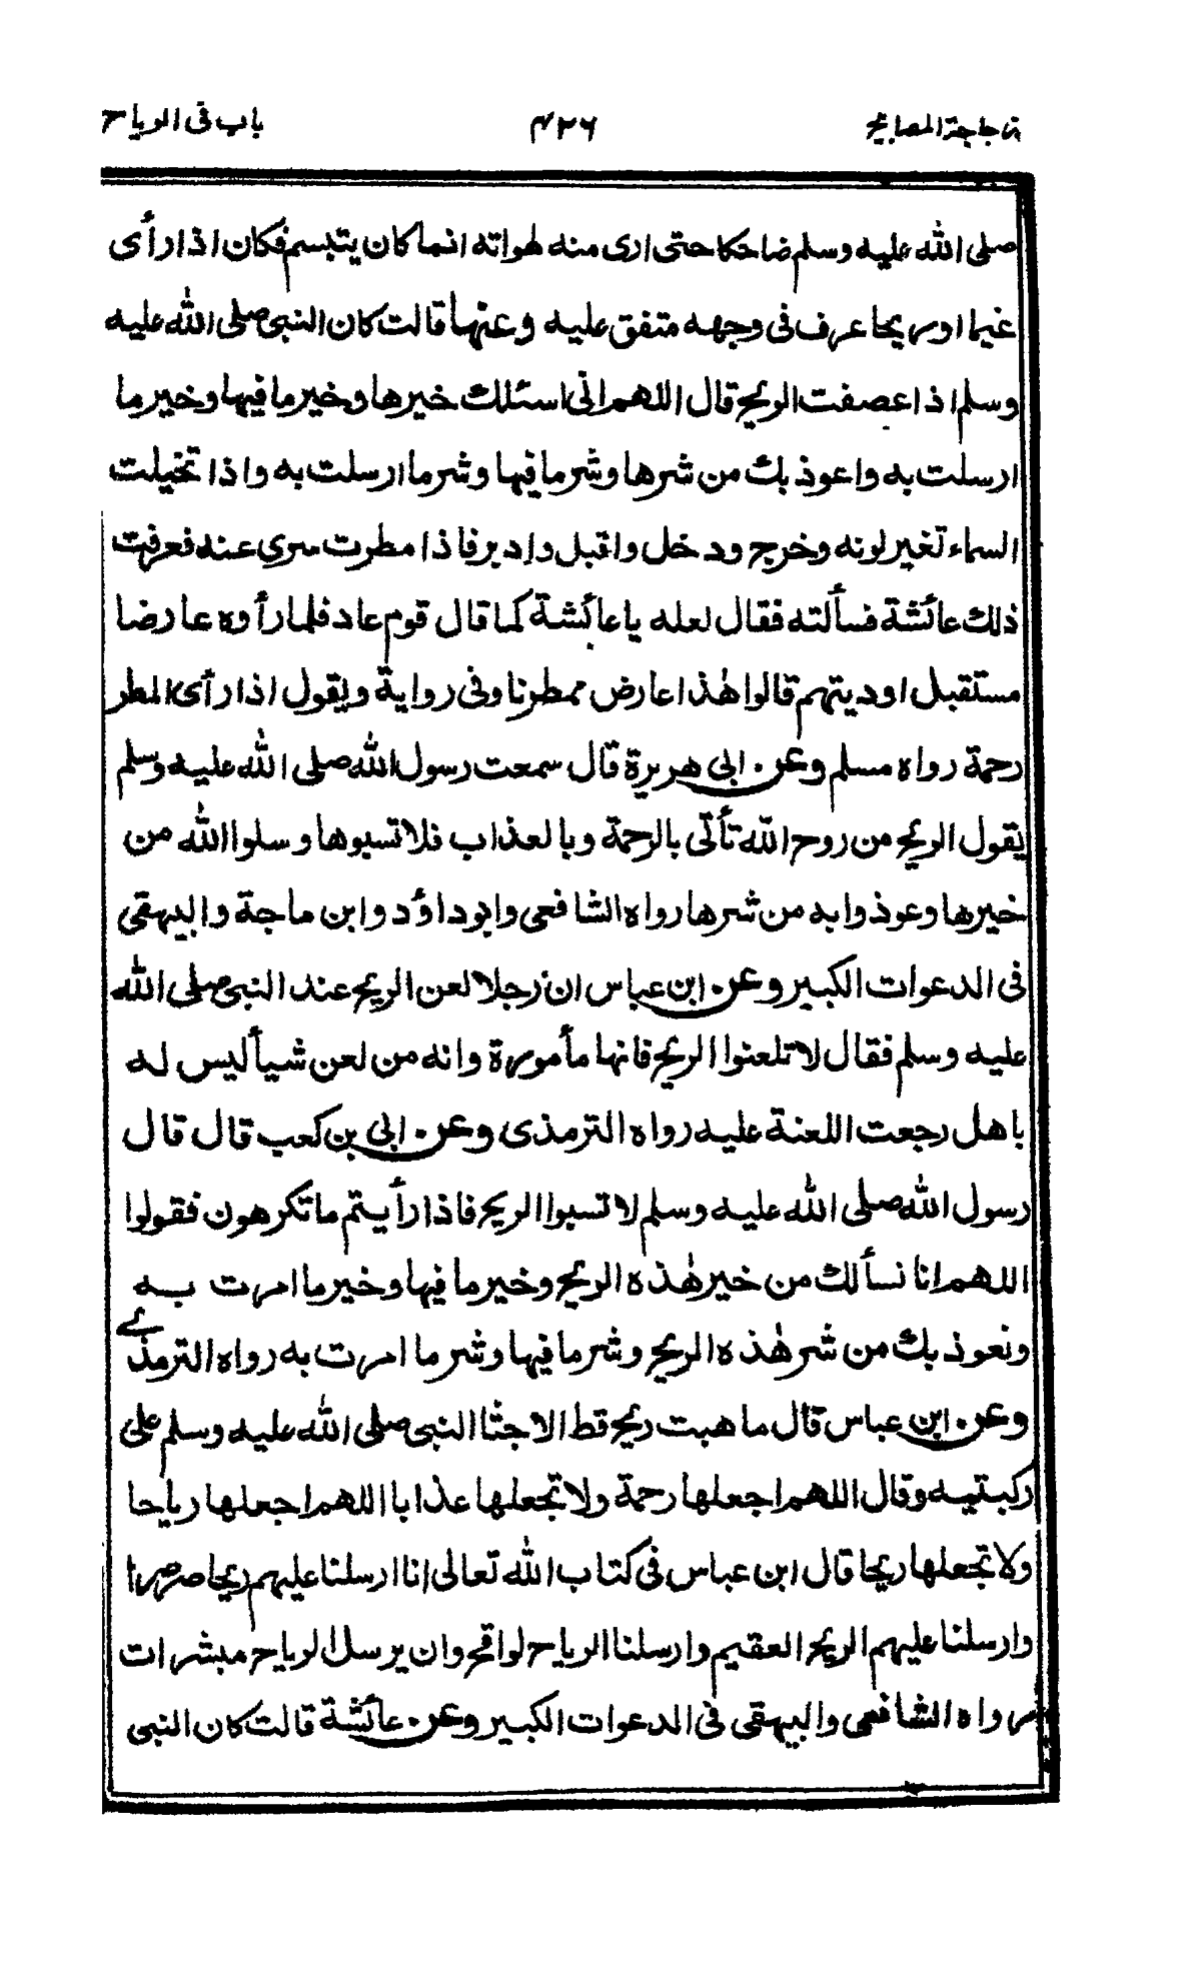 زجاجة المصابيح ۴۲۶ باب في الرياح
صلى الله عليه وسلم ضاحكا حتى ارى منه لهواته انما كان يتبسم فكان اذا رأى
غيما او ريحا عرف في وجهه متفق عليه وعنها قالت كان النبي صلى الله عليه
وسلم اذا عصفت الريح قال اللهم اني اسئلك خيرها وخير ما فيها وخير ما
ارسلت به واعوذ بك من شرها وشر ما فيها وشر ما ارسلت به واذا تخيلت
السماء تغير لونه وخرج ودخل واقبل وادبر فاذا مطرت سري عنه فعرفت
ذلك عائشة فسألته فقال لعله يا عائشة كما قال قوم عاد فلما رأوه عارضا
مستقبل اوديتهم قالوا هٰذا عارض ممطرنا وفي رواية ويقول اذا رأى المطر
رحمة رواه مسلم وعن ابي هريرة قال سمعت رسول الله صلى الله عليه وسلم
يقول الريح من روح الله تأتي بالرحمة وبالعذاب فلا تسبوها وسلوا الله من
خيرها وعوذوا به من شرها رواه الشافعي وابوداؤد وابن ماجة والبيهقي
في الدعوات الكبير وعن ابن عباس ان رجلا لعن الريح عند النبي صلى الله
عليه وسلم فقال لا تلعنوا الريح فانها مأمورة وانه من لعن شيأ ليس له
باهل رجعت اللعنة عليه رواه الترمذي وعن ابي بن كعب قال قال
رسول الله صلى الله عليه وسلم لا تسبوا الريح فاذا رأيتم ما تكرهون فقولوا
اللهم انا نسألك من خير هٰذه الريح وخير ما فيها وخير ما امرت به
ونعوذ بك من شر هٰذه الريح وشر ما فيها وشر ما امرت به رواه الترمذي
وعن ابن عباس قال ما هبت ريح قط الا جثا النبي صلى الله عليه وسلم على
ركبتيه وقال اللهم اجعلها رحمة ولا تجعلها عذابا اللهم اجعلها رياحا
ولا تجعلها ريحا قال ابن عباس في كتاب الله تعالى انا ارسلنا عليهم ريحا صرصرا
وارسلنا عليهم الريح العقيم وارسلنا الرياح لواقح وان يرسل الرياح مبشرات
رواه الشافعي والبيهقي في الدعوات الكبير وعن عائشة قالت كان النبي